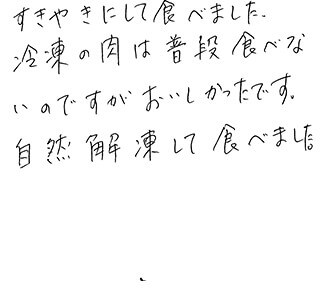 すきやきにして食べました.
冷凍の肉は普段食べな
いのですがおいしかったです。
自然解凍して食べました。